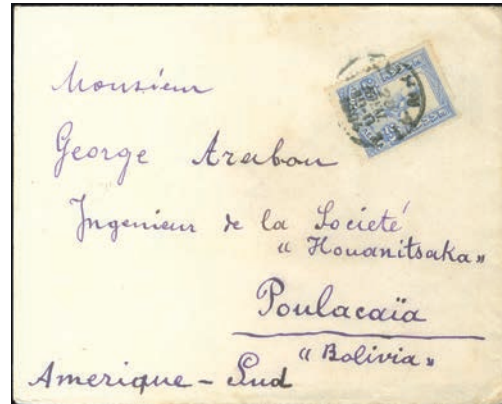 Monsieur
George Arabou
Ingenieur de la Societé
« Houanitsaka »
Poulacaïa
« Bolivia »
Amerique - Sud